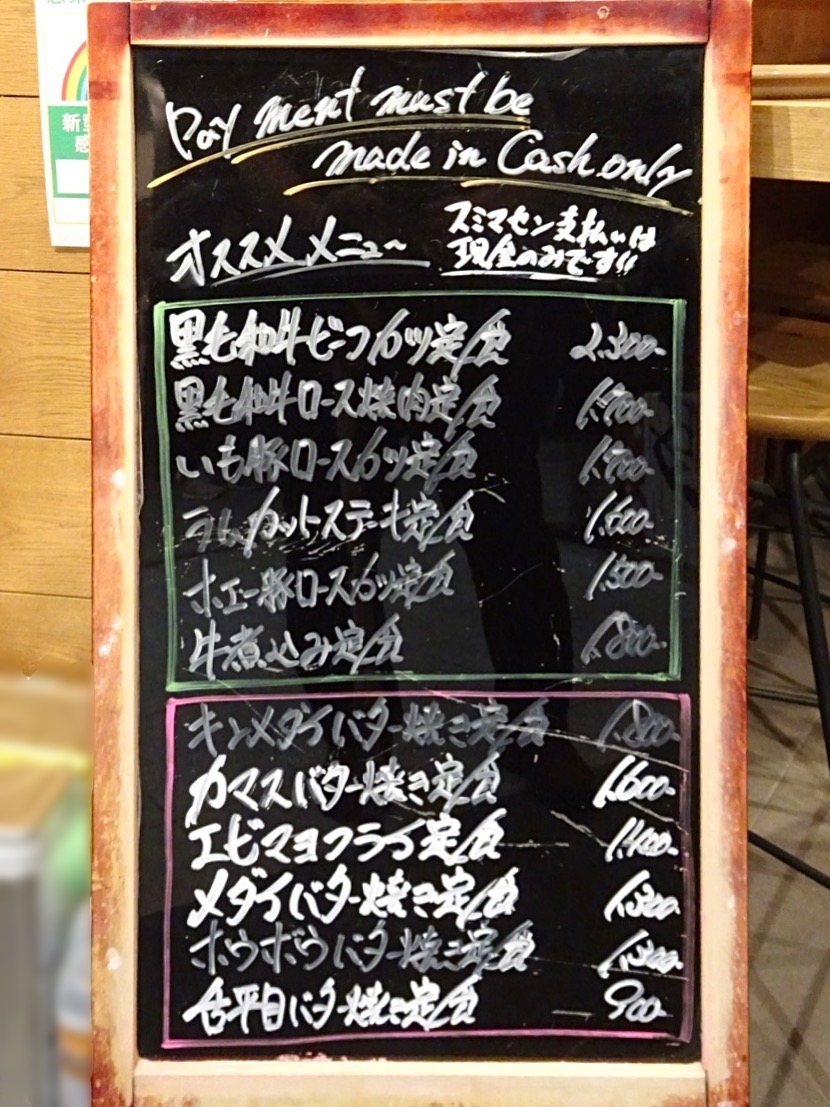 新型
感
Payment must be
made in Cash only
オススメメニュー
スミマセン支払いは
現金のみです!!
黒毛和牛ビーフカツ定食 2,300-
黒毛和牛ロース焼肉定食 1,700-
いも豚ロースカツ定食 1,700-
ラムカットステーキ定食 1,600-
ホエー豚ロースカツ定食 1,500-
牛煮込み定食 1,300-
キンメダイバター焼き定食 1,800-
カマスバター焼き定食 1,600-
エビマヨフライ定食 1,400-
メダイバター焼き定食 1,300-
ホウボウバター焼き定食 1,300-
舌平目バター焼き定食 900-